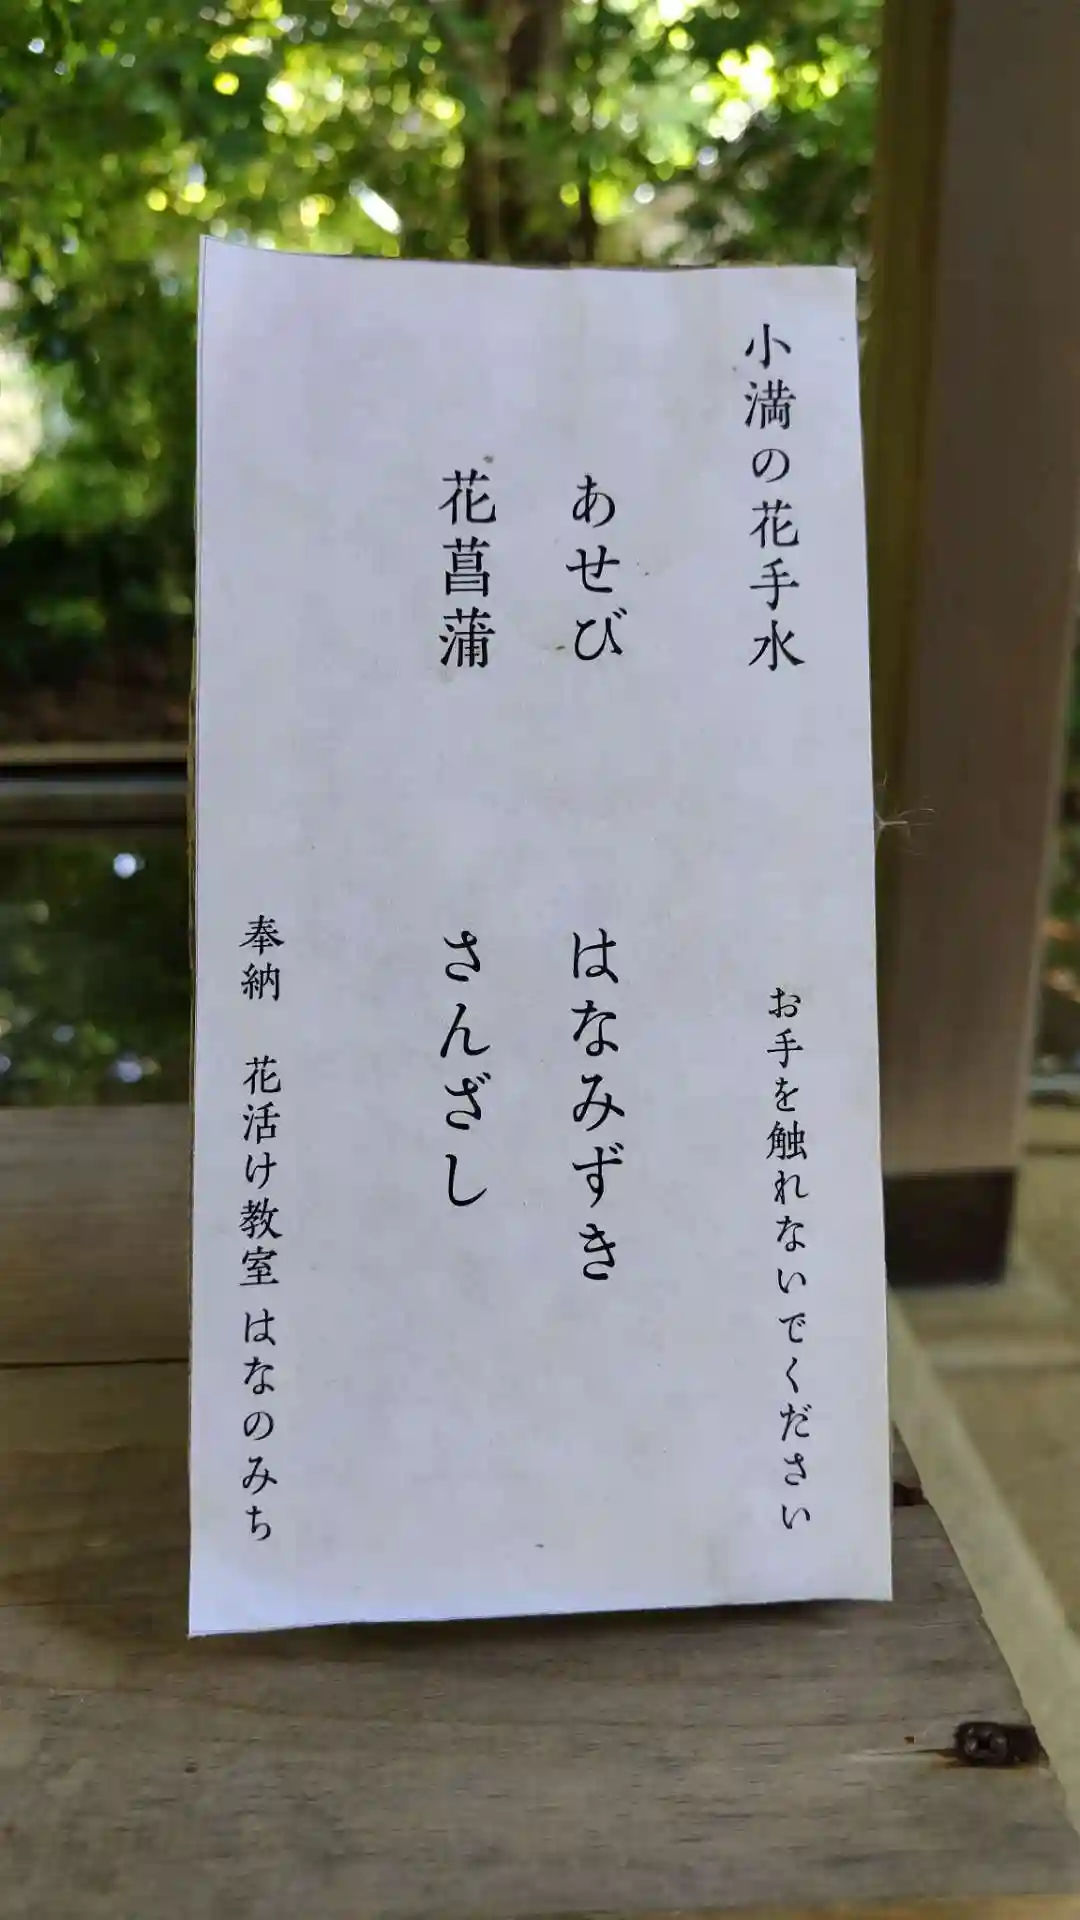 小満の花手水
お手を触れないでください
あせび はなみずき
花菖蒲 さんざし
奉納 花活け教室 はなのみち